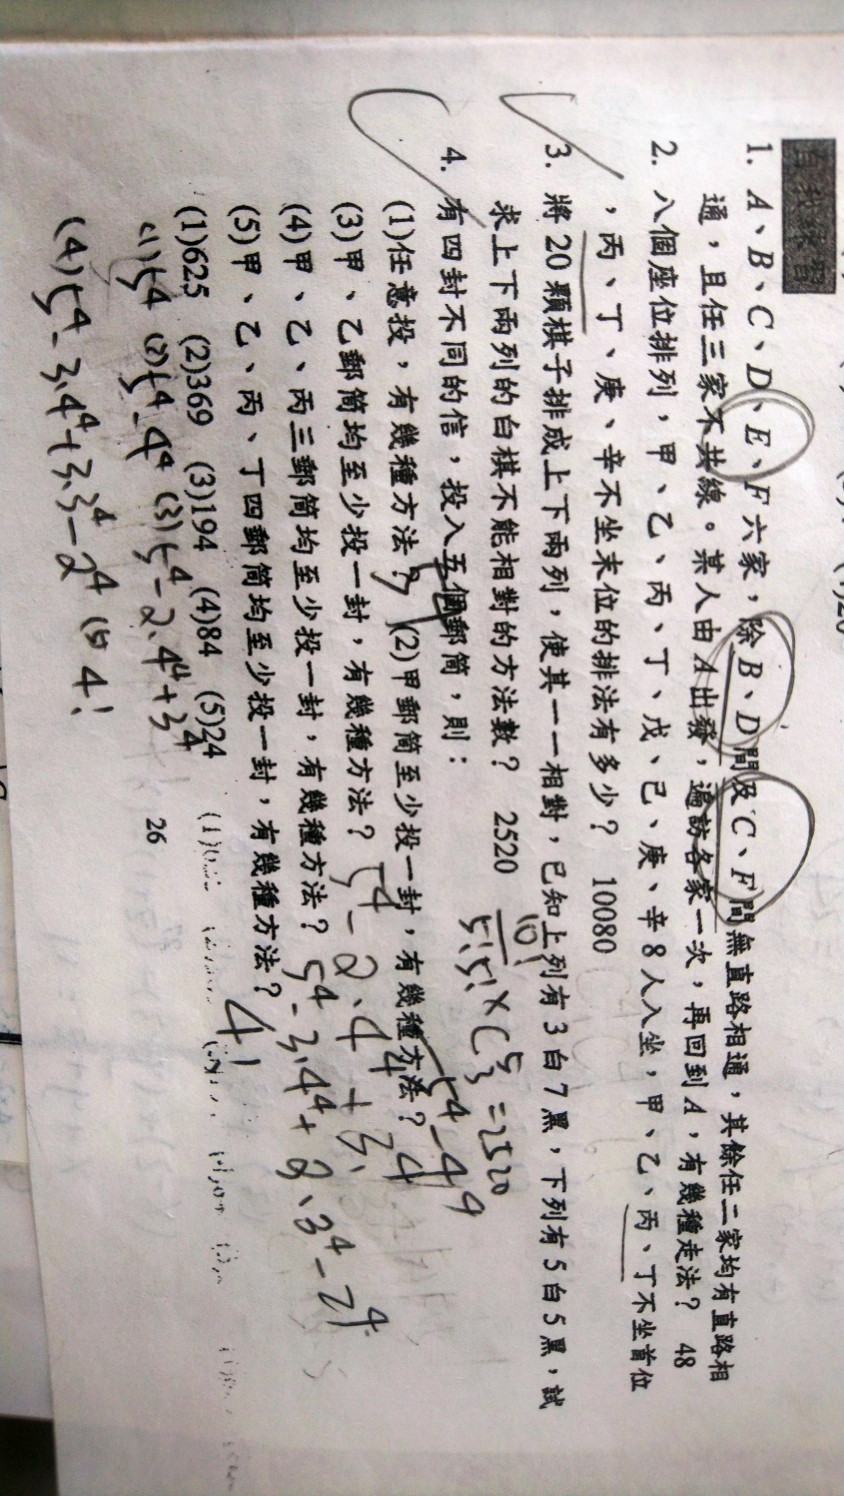 自我練習
1. A、B、C、D、E、F 六家，除 B、D 間及 C、F 間無直路相通，其餘任二家均有直路相
通，且任三家不共線。某人由 A 出發，遍訪各家一次，再回到 A，有幾種走法？ 48
2. 八個座位排列，甲、乙、丙、丁、戊、己、庚、辛 8 人入坐，甲、乙、丙、丁不坐首位
，丙、丁、庚、辛不坐末位的排法有多少？ 10080
3. 將 20 顆棋子排成上下兩列，使其一一相對，已知上列有 3 白 7 黑，下列有 5 白 5 黑，試
求上下兩列的白棋不能相對的方法數？ 2520
10!/5!5! × C⁵₃ = 2520
4. 有四封不同的信，投入五個郵筒，則：
(1)任意投，有幾種方法？ (2)甲郵筒至少投一封，有幾種方法？ 5⁴-4⁴
(3)甲、乙郵筒均至少投一封，有幾種方法？ 5⁴-2.4⁴+3.
(4)甲、乙、丙三郵筒均至少投一封，有幾種方法？ 5⁴-3.4⁴+2.3⁴-2⁴
(5)甲、乙、丙、丁四郵筒均至少投一封，有幾種方法？ 4!
(1)625 (2)369 (3)194 (4)84 (5)24
(1)5⁴ (2)5⁴-4⁴ (3)5⁴-2.4⁴+3⁴
(4)5⁴-3.4⁴+3.3⁴-2⁴ (5) 4!
26